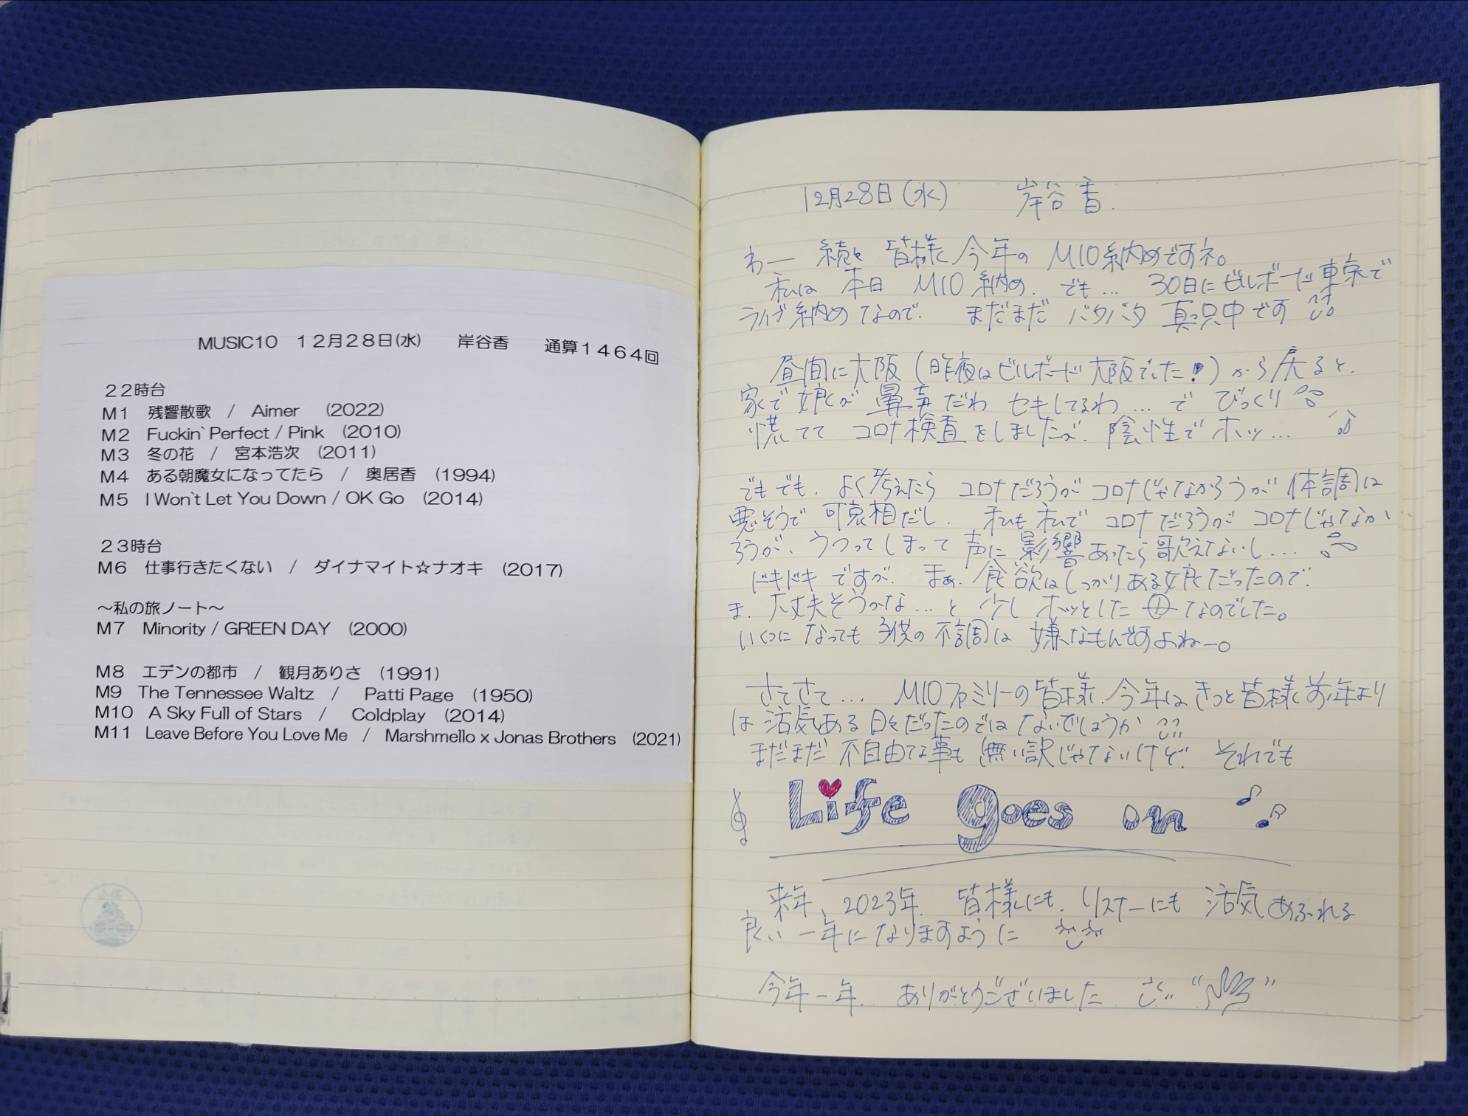 MUSIC10 12月28日(水) 岸谷香 通算1464回
22時台
M1 残響散歌 / Aimer (2022)
M2 Fuckin`Perfect / Pink (2010)
M3 冬の花 / 宮本浩次 (2011)
M4 ある朝魔女になってたら / 奥居香 (1994)
M5 I Won`t Let You Down / OK Go (2014)
23時台
M6 仕事行きたくない / ダイナマイト☆ナオキ (2017)
～私の旅ノート～
M7 Minority / GREEN DAY (2000)
M8 エデンの都市 / 観月ありさ (1991)
M9 The Tennessee Waltz / Patti Page (1950)
M10 A Sky Full of Stars / Coldplay (2014)
M11 Leave Before You Love Me / Marshmello x Jonas Brothers (2021)
12月28日(水) 岸谷香.
わー 続々 皆様 今年の M10納めですネ。
私は 本日 M10納め. でも… 30日にビルボード東京で
ライブ納めなので. まだまだ バタバタ 真只中です
昼間に大阪(昨夜はビルボード大阪でした!)から戻ると.
家で娘が 鼻声だわ セキしてるわ… で びっくり
慌てて コロナ検査をしましたが. 陰性でホッ…
でもでも. よく考えたら コロナだろうがコロナじゃなかろうが 体調は
悪そうで 可哀相だし. 私も私で コロナだろうが コロナじゃなか
ろうが、うつってしまって声に影響あったら歌えないし…
ドキドキですが. まぁ. 食欲はしっかりある娘だったので.
ま. 大丈夫そうかな… と 少し ホッとした 母なのでした。
いくつになっても 子供の不調は 嫌なもんですよねー。
さてさて… M10ファミリーの皆様. 今年はきっと皆様 前年より
は 活気ある 日々だったのではないでしょうか
まだまだ 不自由な事も 無い訳じゃないけど. それでも
Life goes on
来年. 2023年. 皆様にも. リスナーにも 活気あふれる
良い一年になりますように
今年一年. ありがとうございました